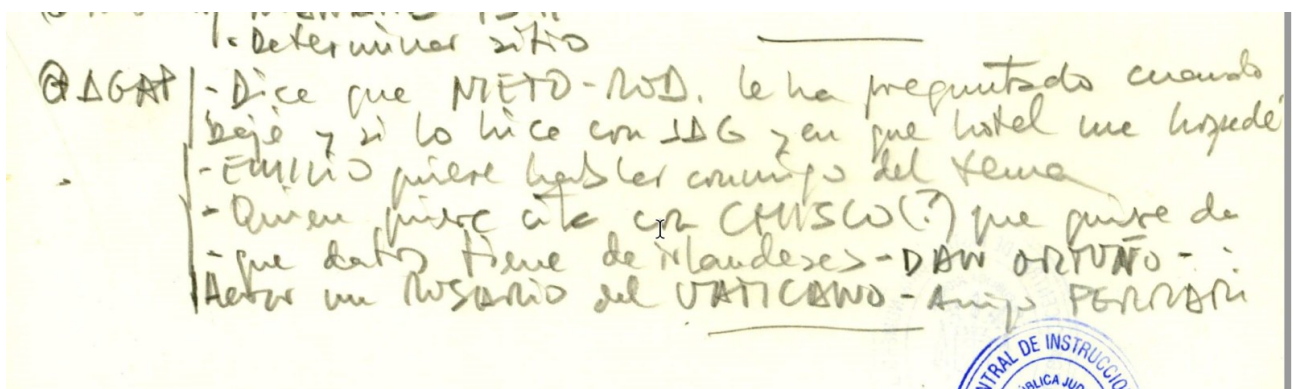 1. Determinar sitio
AGAP - Dice que NIETO-ROD. le ha preguntado cuando
bajé y si lo hice con JAG y en que hotel me hospedé
- EMILIO quiere hablar conmigo del tema
- Quien quiere cita con CHISCO(?) que quire de
- que datos tiene de irlandeses - DAW ORTUÑO -
un ROSARIO del VATICANO - Amigo FERRARI
TRAL DE INSTRUCCIO
BLICA JU